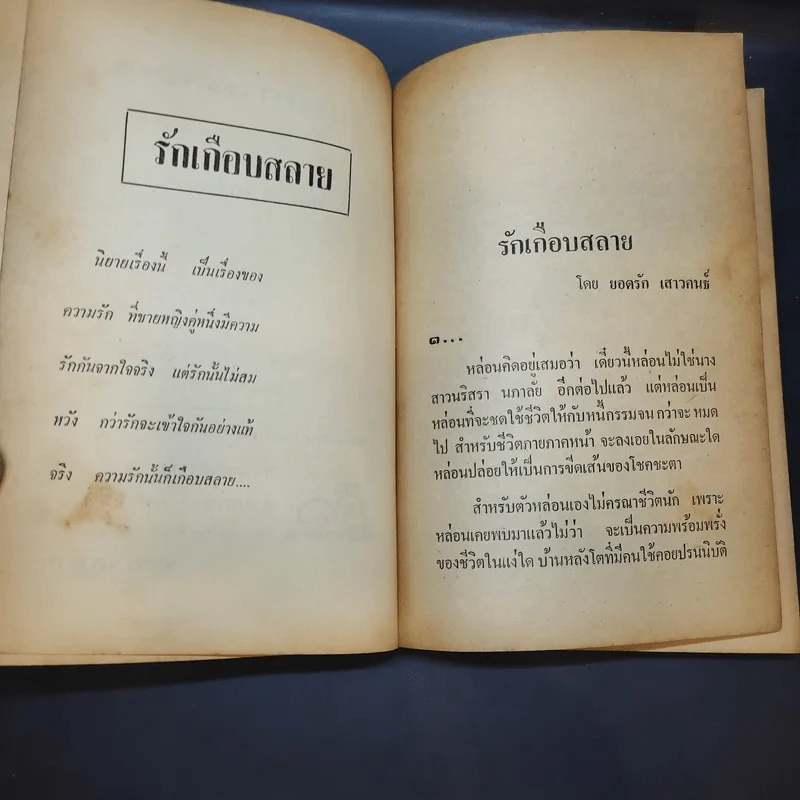 รักเกือบสลาย
นิยายเรื่องนี้ เป็นเรื่องของ
ความรัก ที่ชายหญิงคู่หนึ่งมีความ
รักกันจากใจจริง แต่รักนั้นไม่สม
หวัง กว่ารักจะเข้าใจกันอย่างแท้
จริง ความรักนั้นก็เกือบสลาย....
รักเกือบสลาย
โดย ยอดรัก เสาวคนธ์
๑...
หล่อนคิดอยู่เสมอว่า เดี๋ยวนี้หล่อนไม่ใช่นาง
สาวนริสรา นภาลัย อีกต่อไปแล้ว แต่หล่อนเป็น
หล่อนที่จะชดใช้ชีวิตให้กับหนี้กรรมจน กว่าจะ หมด
ไป สำหรับชีวิตภายภาคหน้า จะลงเอยในลักษณะใด
หล่อนปล่อยให้เป็นการขีดเส้นของโชคชะตา
สำหรับตัวหล่อนเองไม่ครณาชีวิตนัก เพราะ
หล่อนเคยพบมาแล้วไม่ว่า จะเป็นความพร้อมพรั่ง
ของชีวิตในแง่ใด บ้านหลังโตที่มีคนใช้คอยปรนนิบัติ